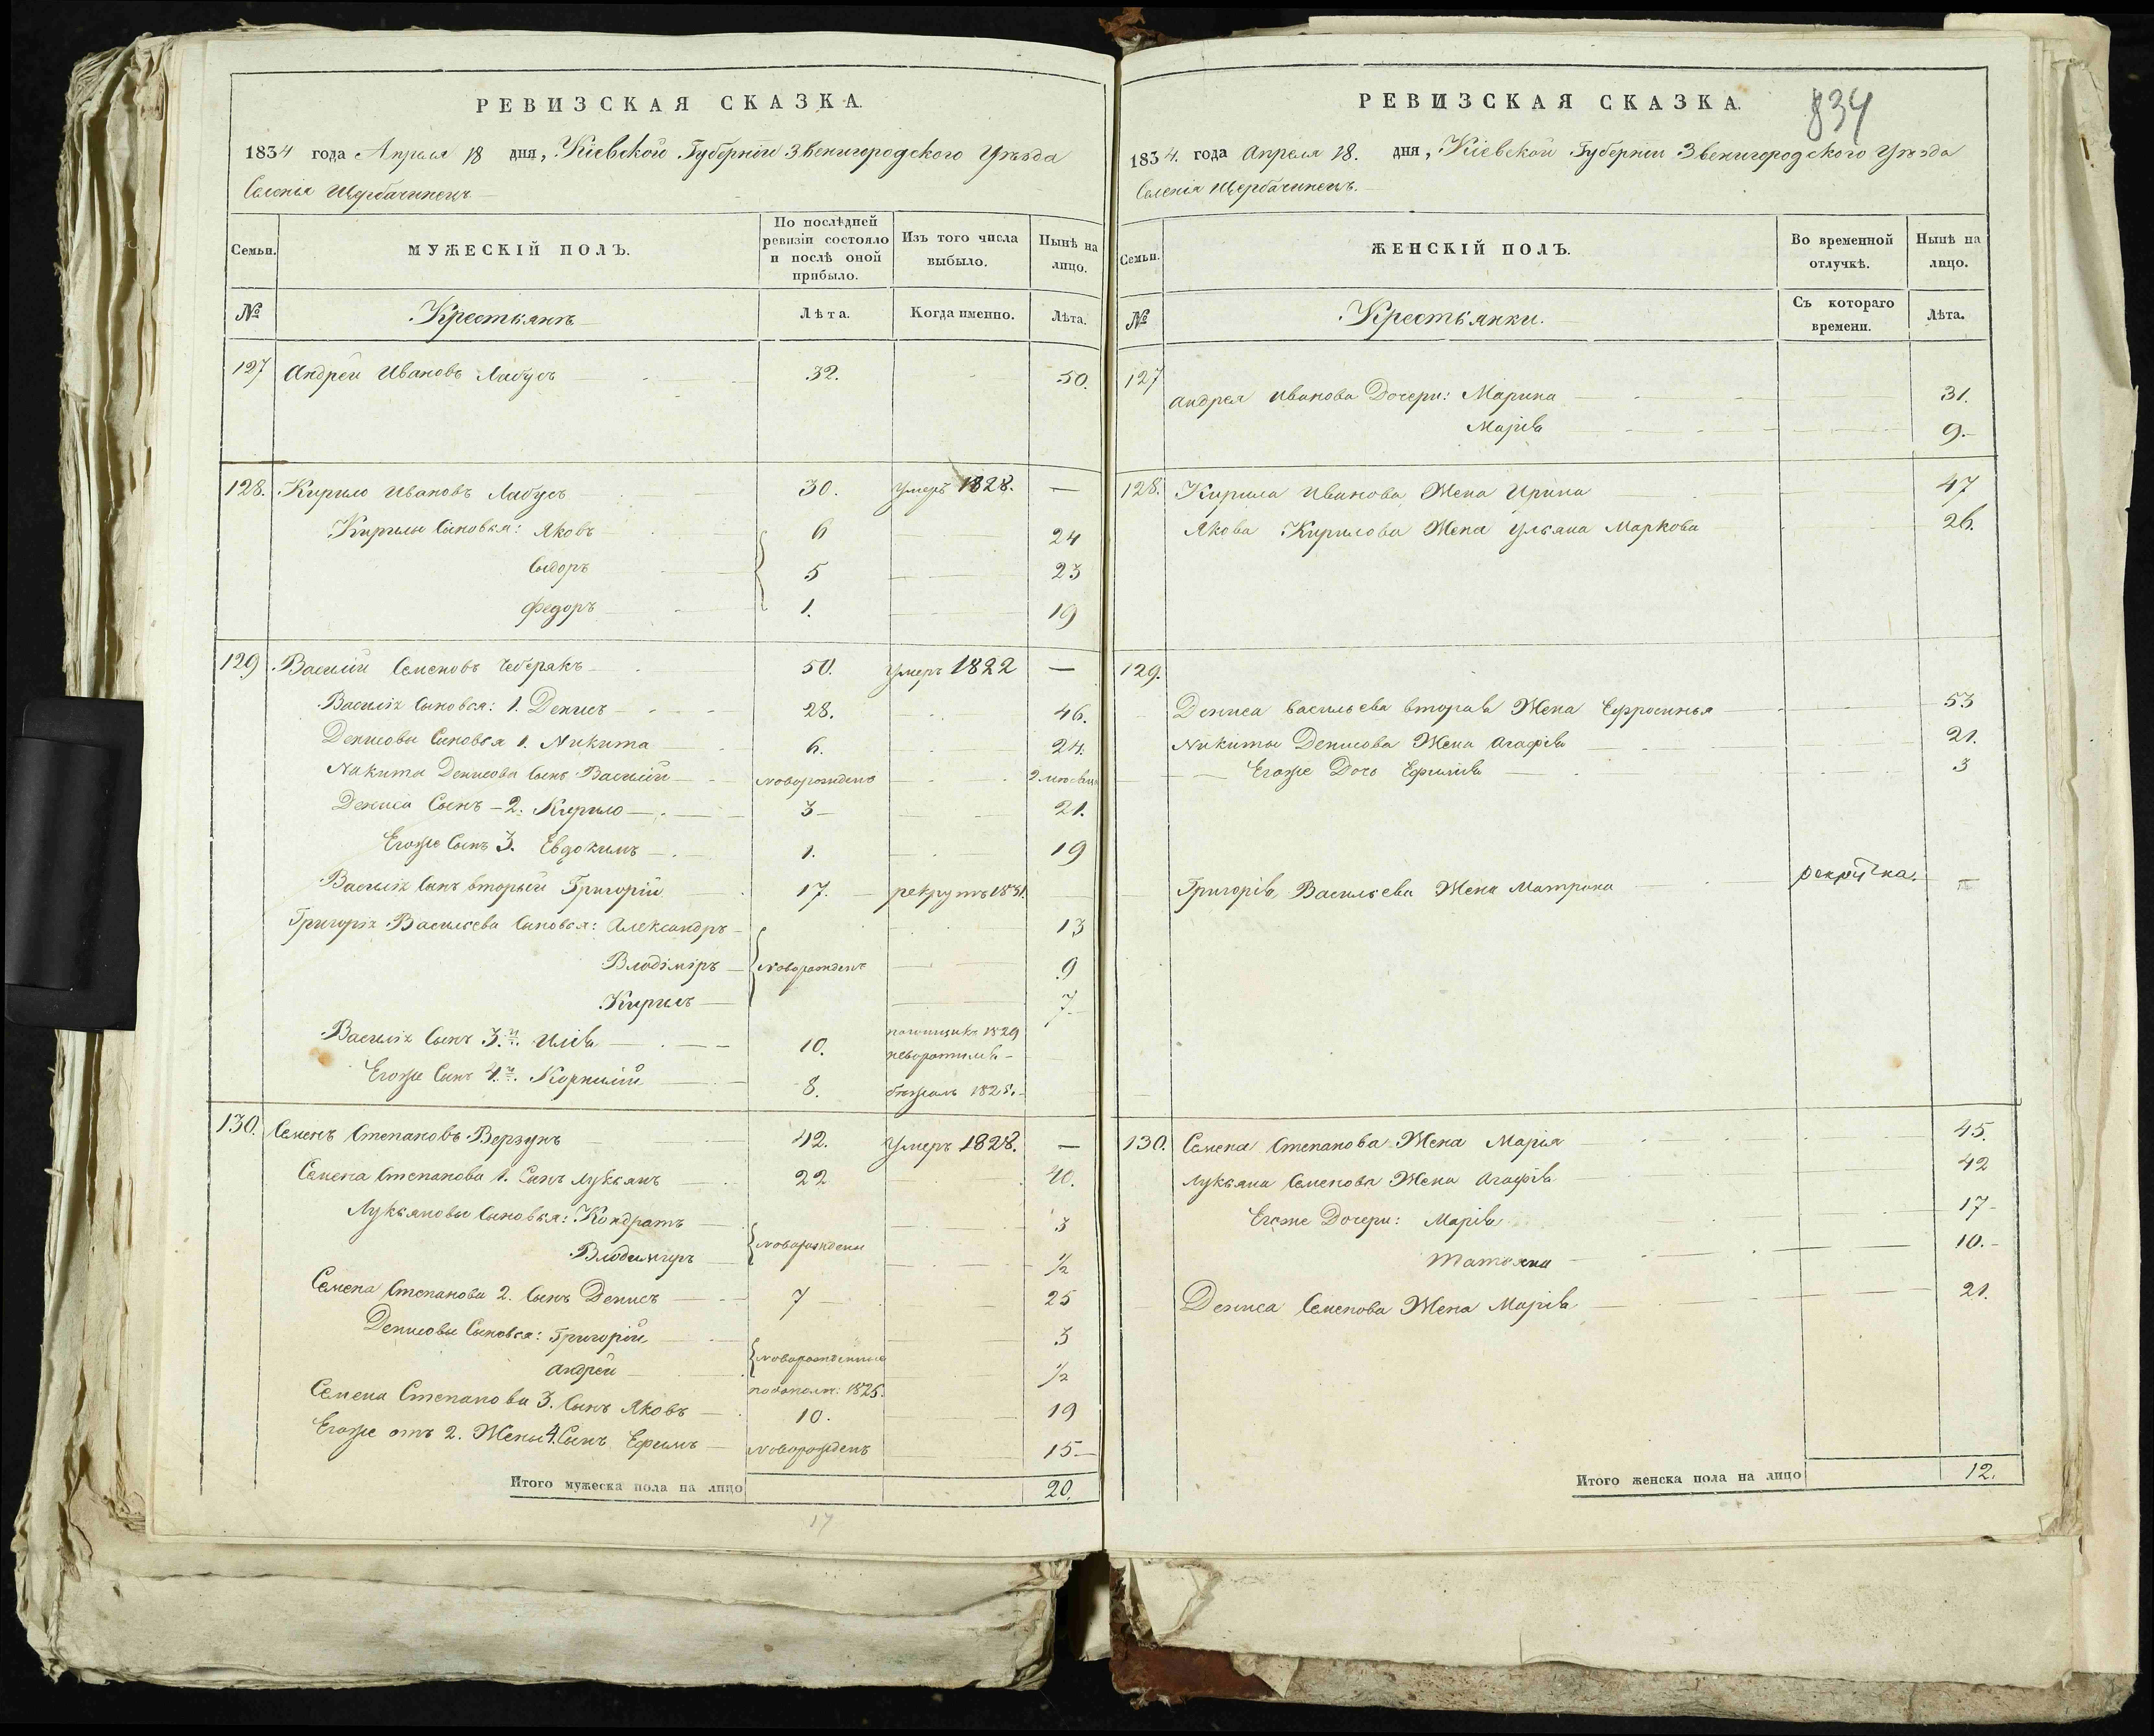 РЕВИЗСКАЯ СКАЗКА.
1834 года Апреля 18 дня, Кіевской Губерніи Звенигородского Уезда
Селенія Щербачинець
Семьи.
МУЖЕСКІЙ ПОЛЪ.
По послѣдней ревизіи состояло и послѣ оной прибыло.
Изъ того числа выбыло.
Нынѣ на лицо.
№
Крестьянъ
Лѣта.
Когда именно.
Лѣта.
127 Андрей Ивановъ Лабусь 32. 50.
128. Кирило Ивановъ Лабусь 30. умеръ 1828. —
Кирилы Сыновья: Яковъ 6 24
Сыдоръ 5 23
Федоръ 1. 19
129 Василій Семеновъ Чеберакъ 50. умеръ 1822 —
Василія Сыновья: 1. Денисъ 28. 46.
Денисовы Сыновья 1. Никита 6. 24.
Никита Денисова Сынъ Василій новорожденъ 2 месяца
Дениса Сынъ - 2. Кирило 3 21.
Егоже Сынъ 3. Евдокимъ 1. 19
Василія Сынъ вторый Григорій 17. рекрутъ 1831.
Григорія Васильева Сыновья: Александръ 13
Влодіміръ новорожден 9
Кирилъ 7
Василія Сынъ 3.й Илія 10. 1829
Егоже Сынъ 4.й Корнилій 8. бежалъ 1825.
130. Семенъ Степановъ Верзунъ 42. Умеръ 1828. —
Семена Степанова 1. Сынъ Лукьянъ 22 40.
Лукьяновы Сыновья: Кондратъ 3
Влодимиръ новорождены ½
Семена Степанова 2. Сынъ Денисъ 7 25
Денисовы Сыновья: Григорій 3
Андрей новорожденные ½
Семена Степанова 3. Сынъ Яковъ 1825. 10. 19
Егоже отъ 2. Жены 4. Сынъ Ефимъ новорожденъ 15
Итого мужеска пола на лицо 20.
17
РЕВИЗСКАЯ СКАЗКА.
834
1834. года Апреля 18. дня, Кіевской Губерніи Звенигородского Уезда
Селенія Щербачинець.
Семьи.
ЖЕНСКІЙ ПОЛЪ.
Во временной отлучкѣ.
Нынѣ на лицо.
№
Крестьянки.
Съ котораго времени.
Лѣта.
127
Андрея Иванова Дочери: Марина 31.
Марія 9.
128. Кирила Иванова Жена Ирина 47
Якова Кирилова Жена Ульяна Маркова 26.
129.
Дениса Васильева вторая Жена Ефросинья 53
Никиты Денисова Жена Агафія 21.
Егоже Дочь Ефимія 3
Григорія Васильева Жена Матрона рекрутка. —
130. Семена Степанова Жена Марія 45.
Лукьяна Семенова Жена Агафія 42
Егоже Дочери: Марія 17
Татьяна 10.
Дениса Семенова Жена Марія 21.
Итого женска пола на лицо 12.